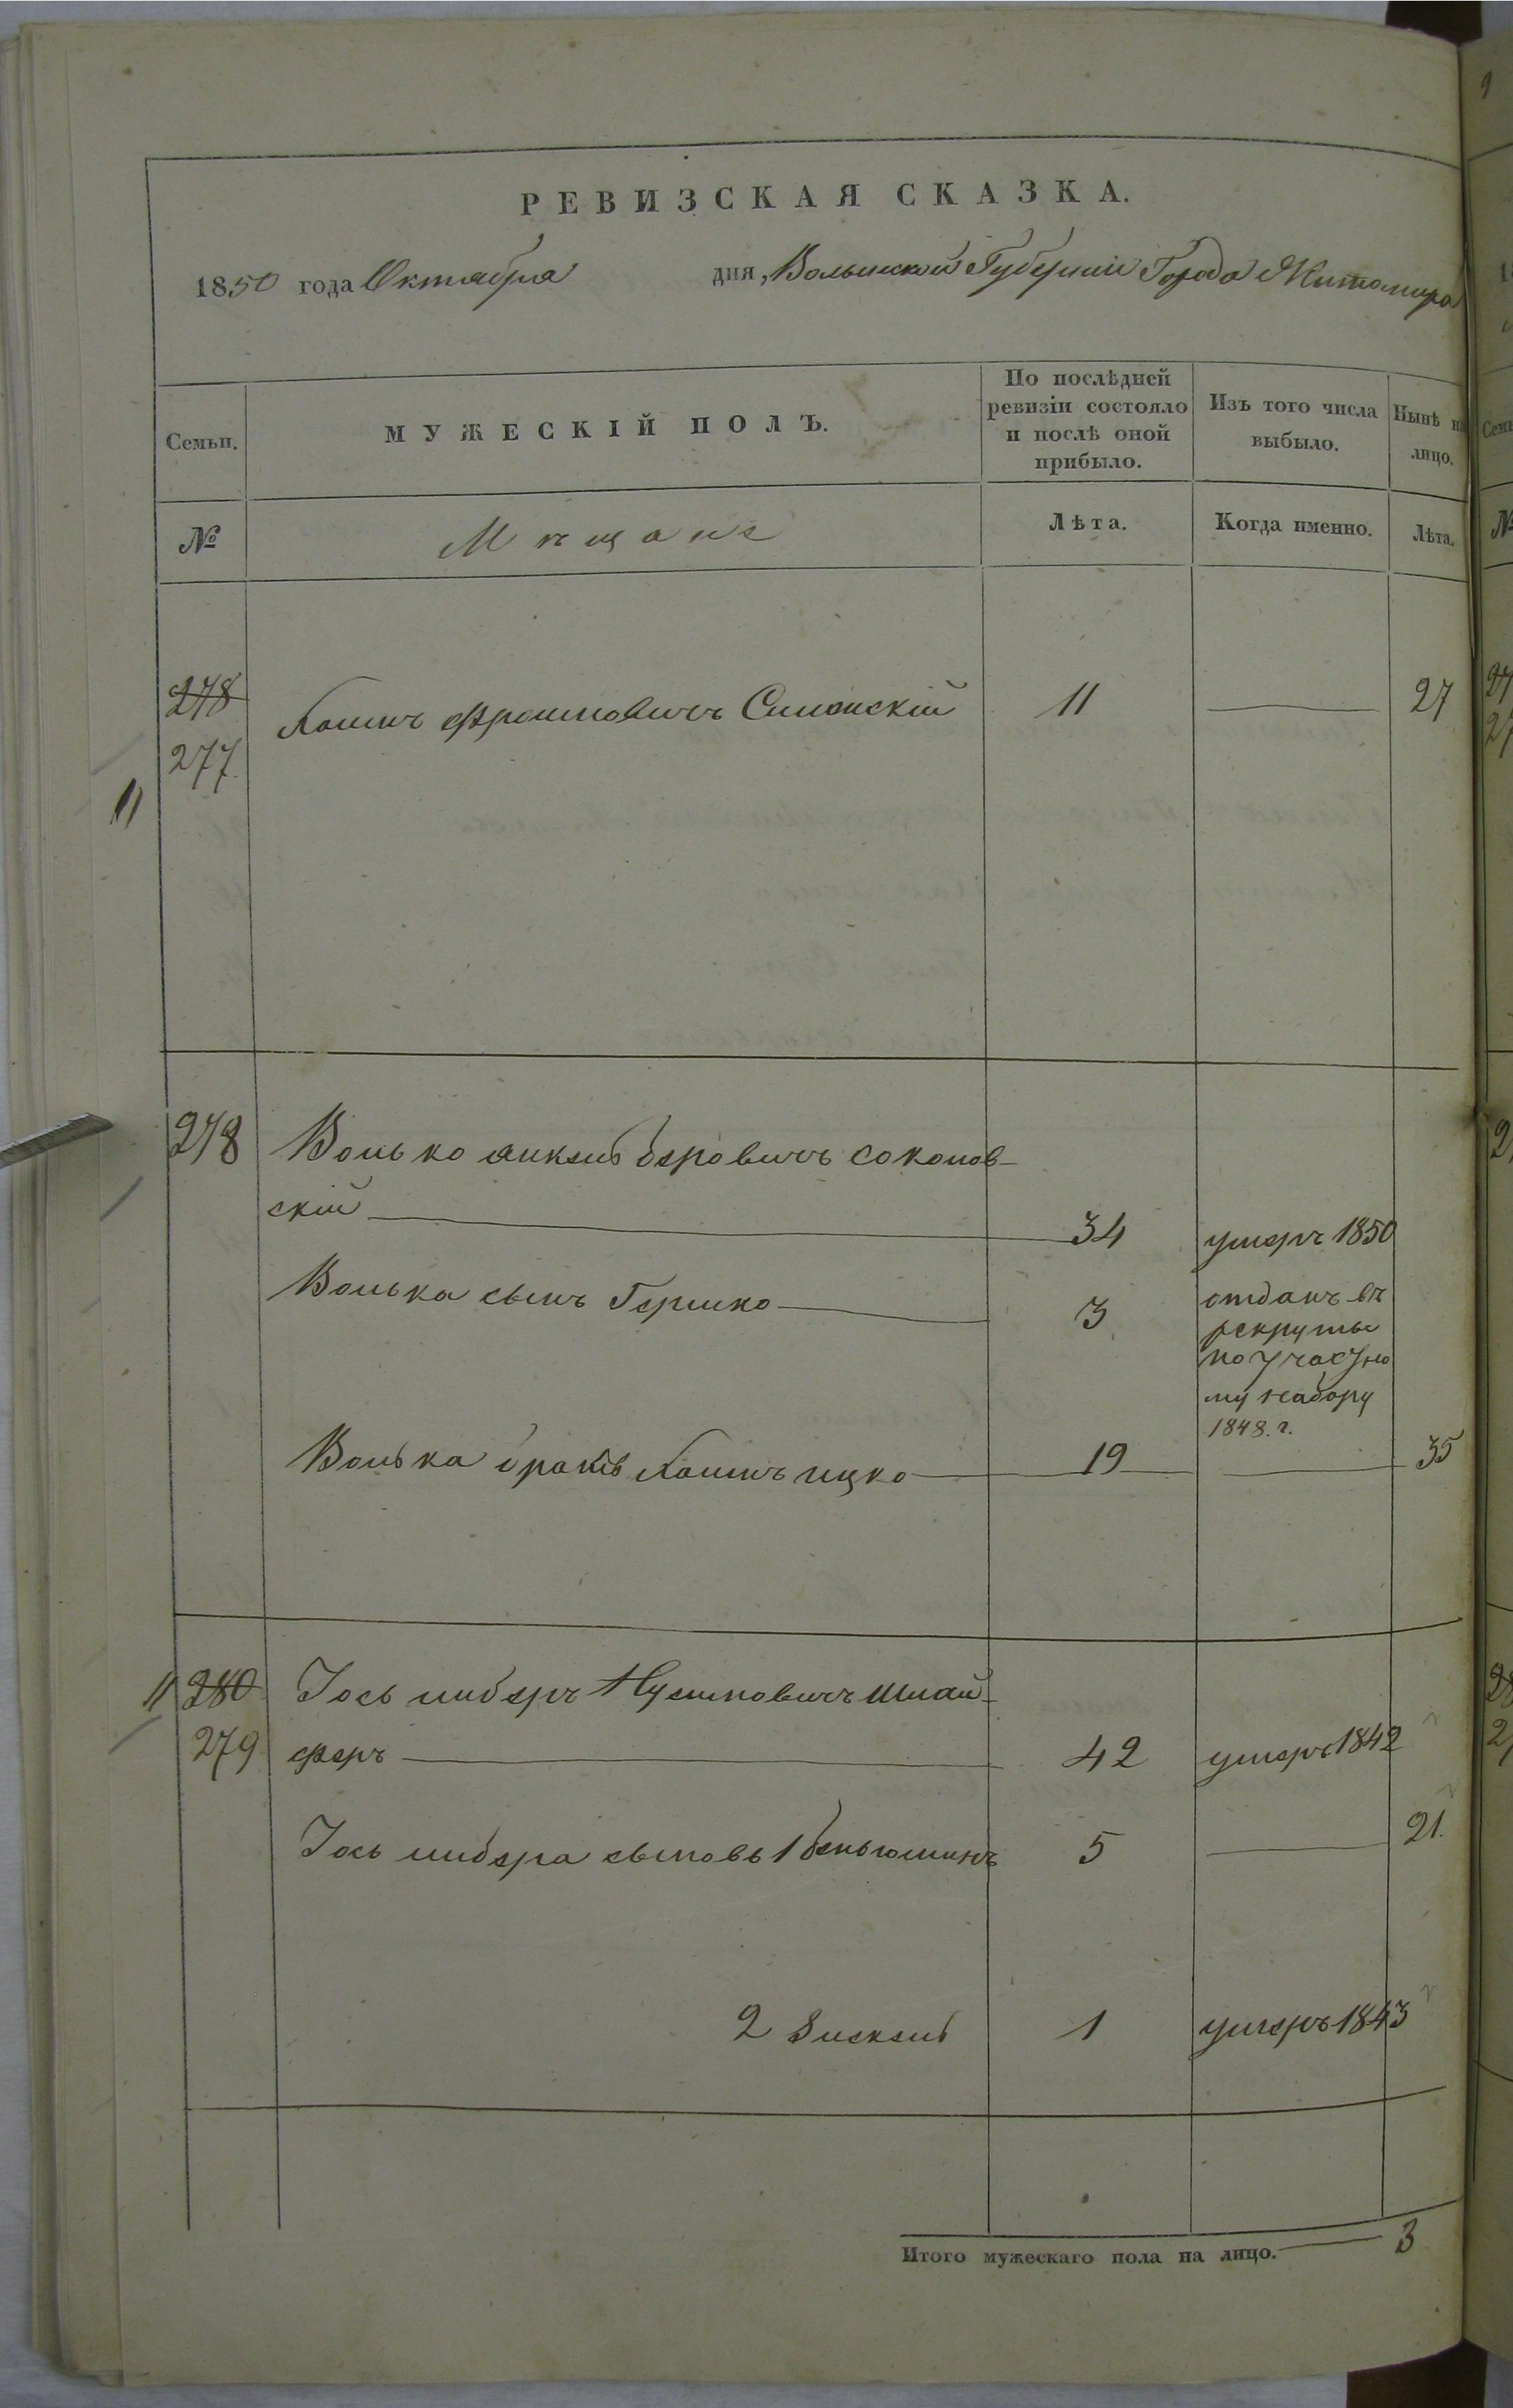 РЕВИЗСКАЯ СКАЗКА.
1850 года Октября дня, Волынской Губерніи Города Житомира
Семьи.
МУЖЕСКІЙ ПОЛЪ.
По послѣдней ревизіи состояло и послѣ оной прибыло.
Изъ того числа выбыло.
Нынѣ на лицо.
№
Мѣщане
Лѣта.
Когда именно.
Лѣта.
278
277
Хаимъ Фроимовичъ Слионскій 11 27
278 Волько Янкель Беровичъ Соколов-
скій 34 умеръ 1850
Волька сынъ Гершко 3 отданъ въ
рекруты
по участко
му набору
1848. г.
Волька братъ Хаимъ Ицко 19 35
280 Іось Либеръ Нусимовичъ Шлай-
279 феръ 42 умеръ 1842
Іось Либера сыновь 1 Беньюминъ 5 21.
2 1 умеръ 1843
Итого мужескаго пола на лицо. 3